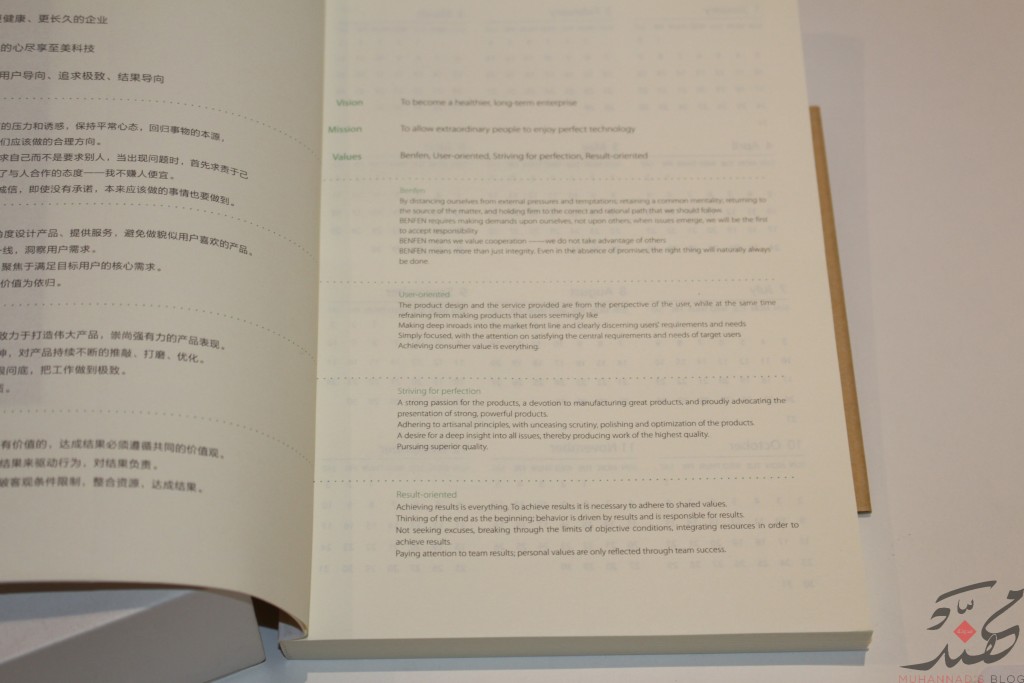 健康、更长久的企业
的心尽享至美科技
用户导向、追求极致、结果导向
的压力和诱惑，保持平常心态，回归事物的本源，
们应该做的合理方向。
求自己而不是要求别人，当出现问题时，首先求责于己
了与人合作的态度——我不赚人便宜。
诚信，即使没有承诺，本来应该做的事情也要做到。
度设计产品、提供服务，避免做貌似用户喜欢的产品。
线，洞察用户需求。
聚焦于满足目标用户的核心需求。
价值为依归。
致力于打造伟大产品，崇尚强有力的产品表现。
对产品持续不断的推敲、打磨、优化。
根问底，把工作做到极致。
有价值的，达成结果必须遵循共同的价值观。
结果来驱动行为，对结果负责。
被客观条件限制，整合资源，达成结果。
Vision To become a healthier, long-term enterprise
Mission To allow extraordinary people to enjoy perfect technology
Values Benfen, User-oriented, Striving for perfection, Result-oriented
Benfen
By distancing ourselves from external pressures and temptations, retaining a common mentality, returning to
the source of the matter, and holding firm to the correct and rational path that we should follow
BENFEN requires making demands upon ourselves, not upon others; when issues emerge, we will be the first
to accept responsibility
BENFEN means we value cooperation ——we do not take advantage of others
BENFEN means more than just integrity. Even in the absence of promises, the right thing will naturally always
be done.
User-oriented
The product design and the service provided are from the perspective of the user, while at the same time
refraining from making products that users seemingly like
Making deep inroads into the market front line and clearly discerning users' requirements and needs
Simply focused, with the attention on satisfying the central requirements and needs of target users
Achieving consumer value is everything.
Striving for perfection
A strong passion for the products, a devotion to manufacturing great products, and proudly advocating the
presentation of strong, powerful products.
Adhering to artisanal principles, with unceasing scrutiny, polishing and optimization of the products.
A desire for a deep insight into all issues, thereby producing work of the highest quality.
Pursuing superior quality.
Result-oriented
Achieving results is everything. To achieve results it is necessary to adhere to shared values.
Thinking of the end as the beginning; behavior is driven by results and is responsible for results.
Not seeking excuses, breaking through the limits of objective conditions, integrating resources in order to
achieve results.
Paying attention to team results; personal values are only reflected through team success.
مهند
MUHANNAD'S BLOG